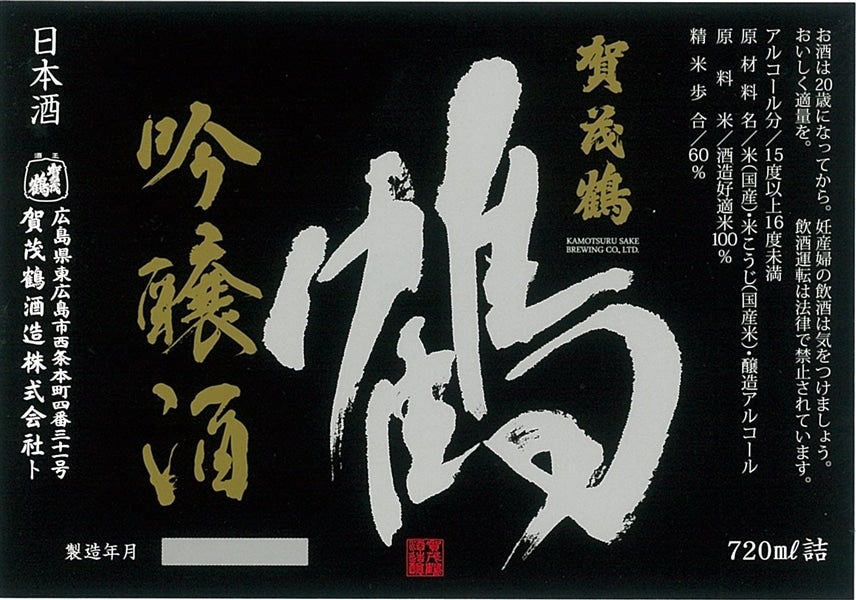 お酒は20歳になってから。 妊産婦の飲酒は気をつけましょう。
おいしく適量を。 飲酒運転は法律で禁止されています。
アルコール分/15度以上16度未満
原材料名/米(国産)・米こうじ(国産米)・醸造アルコール
原料米/酒造好適米100%
精米歩合/60%
賀茂鶴
KAMOTSURU SAKE
BREWING CO., LTD.
鶴
吟醸酒
日本酒
酒王
賀茂鶴
広島県東広島市西条本町四番三十一号
賀茂鶴酒造株式会社ト
製造年月
720mℓ詰